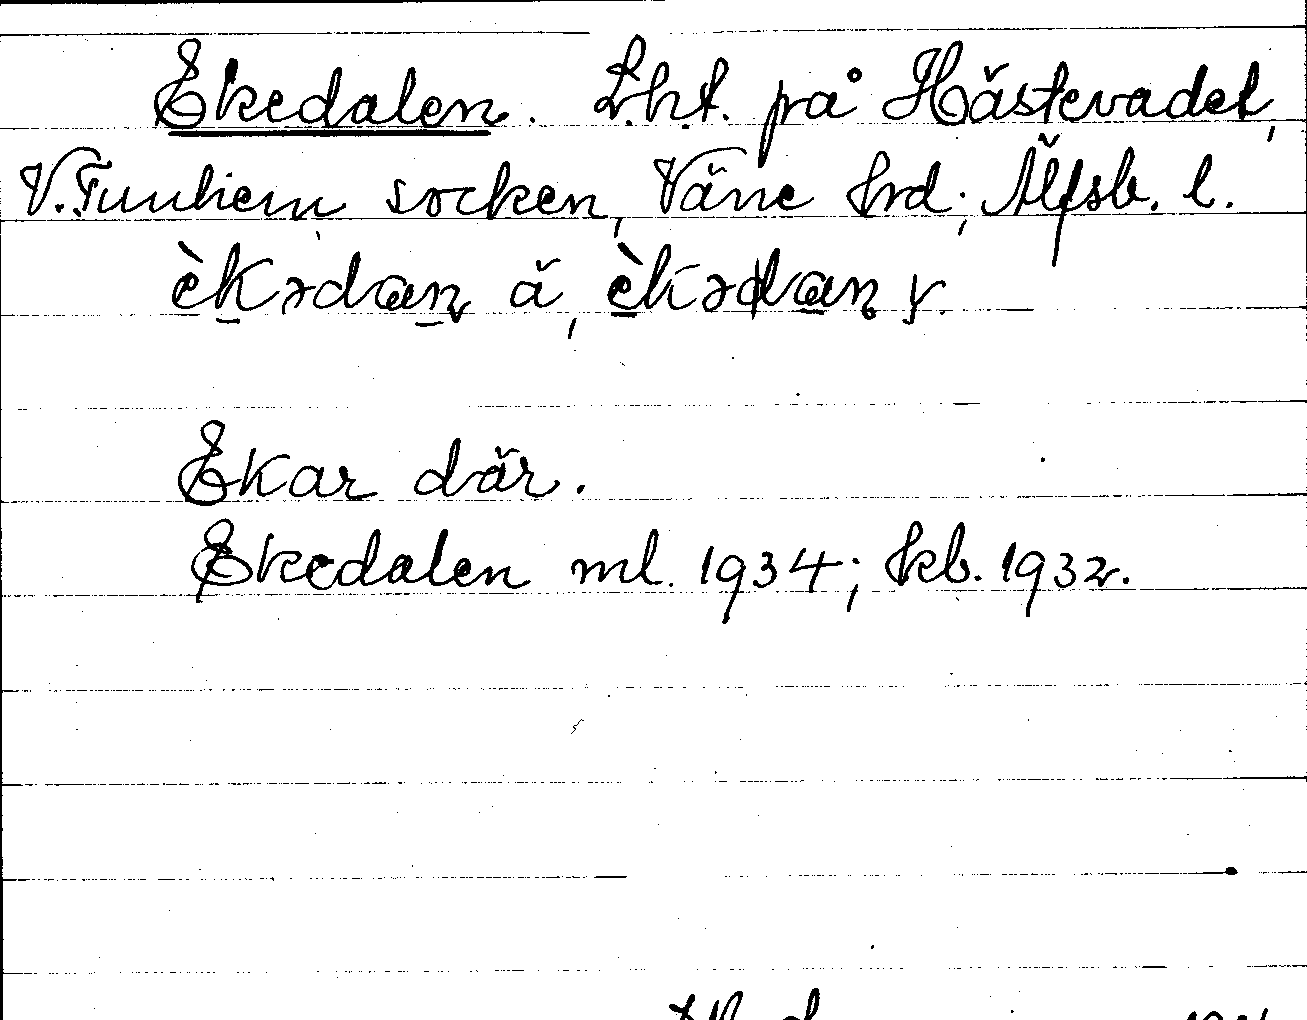 Ekedalen. L.h.t. på Hästevadet,
V. Tunhem socken, Väne hrd; Älfsb. l.
èkədan ä, èkədan y.
Ekar där.
Ekedalen ml. 1934; kb. 1932.